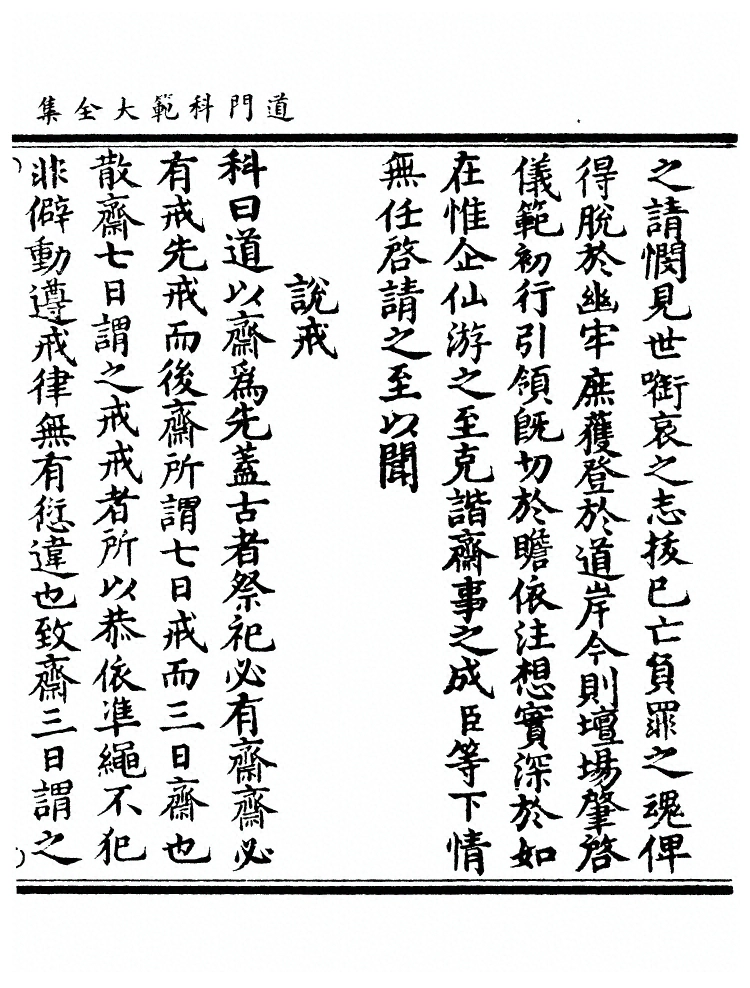 道門科範大全集
之請憫見世銜哀之志拔已亡負罪之魂俾
得脫於幽牢庶獲登於道岸今則壇場肇啓
儀範初行引領旣切於瞻依注想實深於如
在惟企仙游之至克諧齋事之成臣等下情
無任啓請之至以聞
說戒
科曰道以齋爲先蓋古者祭祀必有齋齋必
有戒先戒而後齋所謂七日戒而三日齋也
散齋七日謂之戒戒者所以恭依准繩不犯
非僻動遵戒律無有愆違也致齋三日謂之